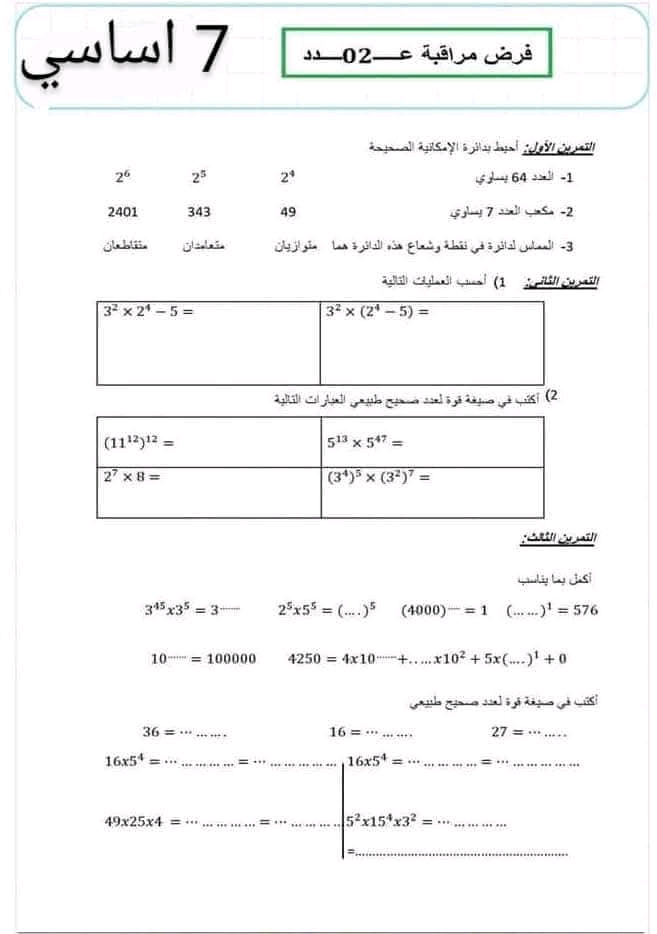 7 اساسي
فرض مراقبة عـــ02ـــدد
التمرين الأول: أحيط بدائرة الإمكانية الصحيحة
1- العدد 64 يساوي 2⁴ 2⁵ 2⁶
2- مكعب العدد 7 يساوي 49 343 2401
3- المماس لدائرة في نقطة وشعاع هذه الدائرة هما متوازيان متعامدان متقاطعان
التمرين الثاني: 1) أحسب العمليات التالية
3² × 2⁴ − 5 = 3² × (2⁴ − 5) =
2) أكتب في صيغة قوة لعدد صحيح طبيعي العبارات التالية
(11¹²)¹² = 5¹³ × 5⁴⁷ =
2⁷ × 8 = (3⁴)⁵ × (3²)⁷ =
التمرين الثالث:
أكمل بما يناسب
3⁴⁵x3⁵ = 3······· 2⁵x5⁵ = (....)⁵ (4000)···· = 1 (... ...)¹ = 576
10······ = 100000 4250 = 4x10·······+.....x10² + 5x(....)¹ + 0
أكتب في صيغة قوة لعدد صحيح طبيعي
36 = ··· ... .... 16 = ··· ... .... 27 = ··· ... ..
16x5⁴ = ··· ... ... ... ... = ··· ... ... ... ... 16x5⁴ = ··· ... ... ... ... = ··· ... ... ... ...
49x25x4 = ··· ... ... ... ... = ··· ... ... ... 5²x15⁴x3² = ··· ... ... ... ...
=............................................................